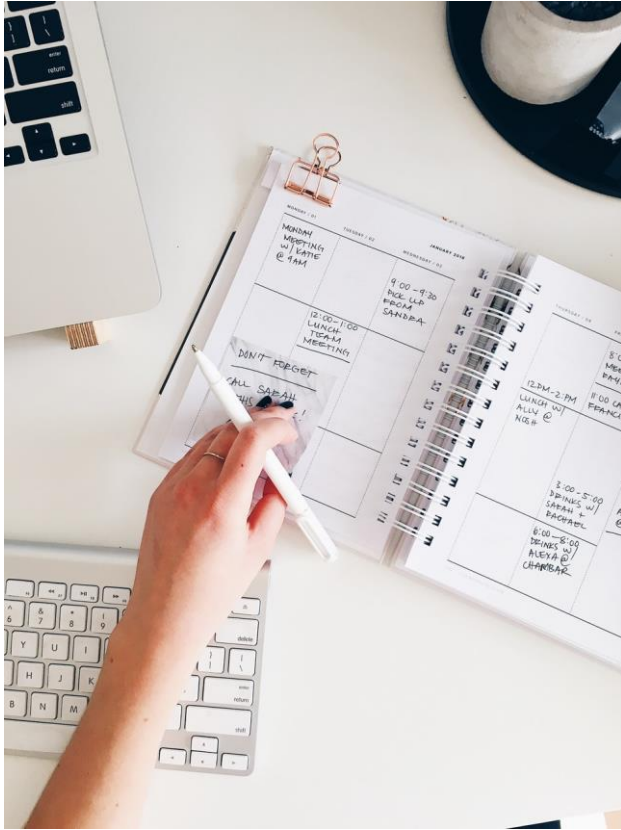 enter
return
shift
MONDAY / 01
TUESDAY / 02
WEDNESDAY / 03
JANUARY 2018
MONDAY
MEETING
W/ KATIE
@ 9AM
9:00-9:30
PICK UP
FROM
SANDRA
12:00-1:00
LUNCH
TEAM
MEETING
DON'T FORGET
CALL SARAH
12PM-2:PM
LUNCH W/
ALLY @
NOSH
11:00
3:00-5:00
DRINKS W/
SARAH +
RACHAEL
6:00-8:00
DRINKS W/
ALEXA @
CHAMBAR
6
& 7
* 8
( 9
delete
Y U I
enter
return
H J K
B N M
shift